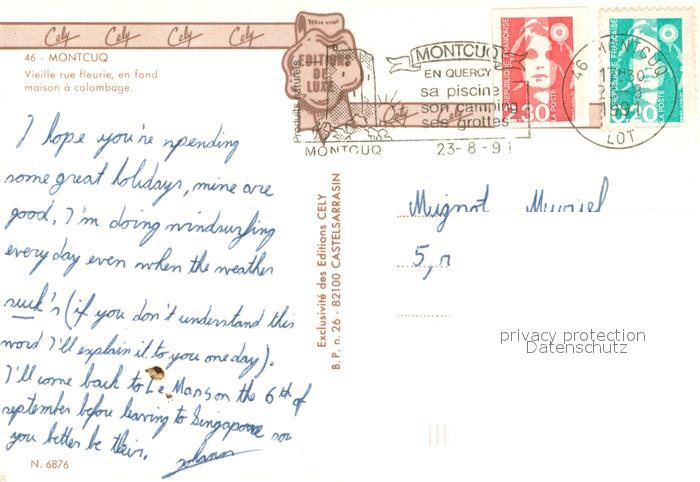 Cely Cely Cely Cely
46 - MONTCUQ
Vieille rue fleurie, en fond
maison à colombage.
EDITIONS
DE
LUXE
Cely Cely
Produits naturels
MONTCUQ
MONTCUQ
EN QUERCY
sa piscine
son camping
ses grottes
23-8-91
RÉPUBLIQUE FRANÇAISE
2,30
LA POSTE
0,10
LA POSTE
46 MONTCUQ
LOT
I hope you're spending
some great holidays, mine are
good. I'm doing windsurfing
every day even when the weather
suck's (if you don't understand this
word I'll explain it to you one day).
I'll come back to Le Mans on the 6th of
september before leaving to Singapore so
you better be their.
N. 6876
Exclusivité des Editions CELY
B.P. n. 26 - 82100 CASTELSARRASIN
Mignot Muriel
5,
privacy protection
Datenschutz